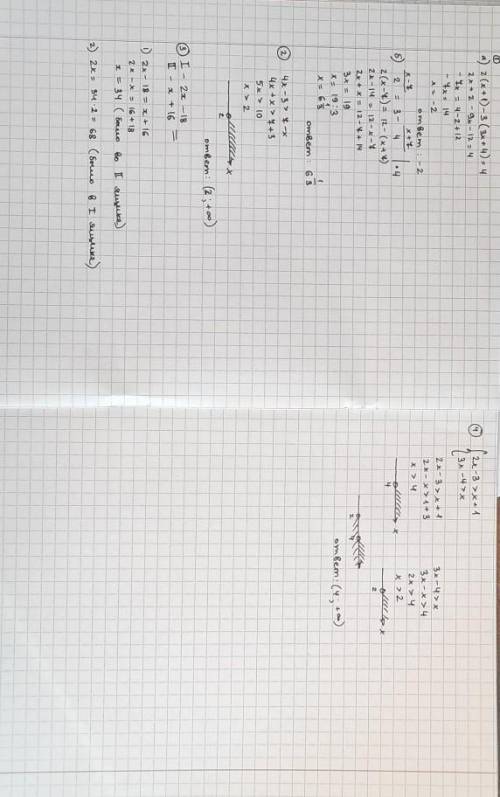 ①
а) 2(x+1)-3(3x+4)=4
2x+2-9x-12=4
-7x=4-2+12
-7x=14
x=-2
ответ: -2
б) (x-7)/2 = 3 - (x+7)/4 | ·4
2(x-7)=12-(x+7)
2x-14=12-x-7
2x+x=12-7+14
3x=19
x=19:3
x=6 1/3
ответ: 6 1/3
② 4x-3>7-x
4x+x>7+3
5x>10
x>2
2 x
ответ: (2; +∞)
③ I - 2x-18
II - x+16 =
1) 2x-18=x+16
2x-x=16+18
x=34 (было во II ящике)
2) 2x=34·2=68 (было в I ящике)
④ { 2x-3>x+1
3x-4>x
2x-3>x+1
2x-x>1+3
x>4
4 x
3x-4>x
3x-x>4
2x>4
x>2
2 x
2 4
ответ: (4; +∞)